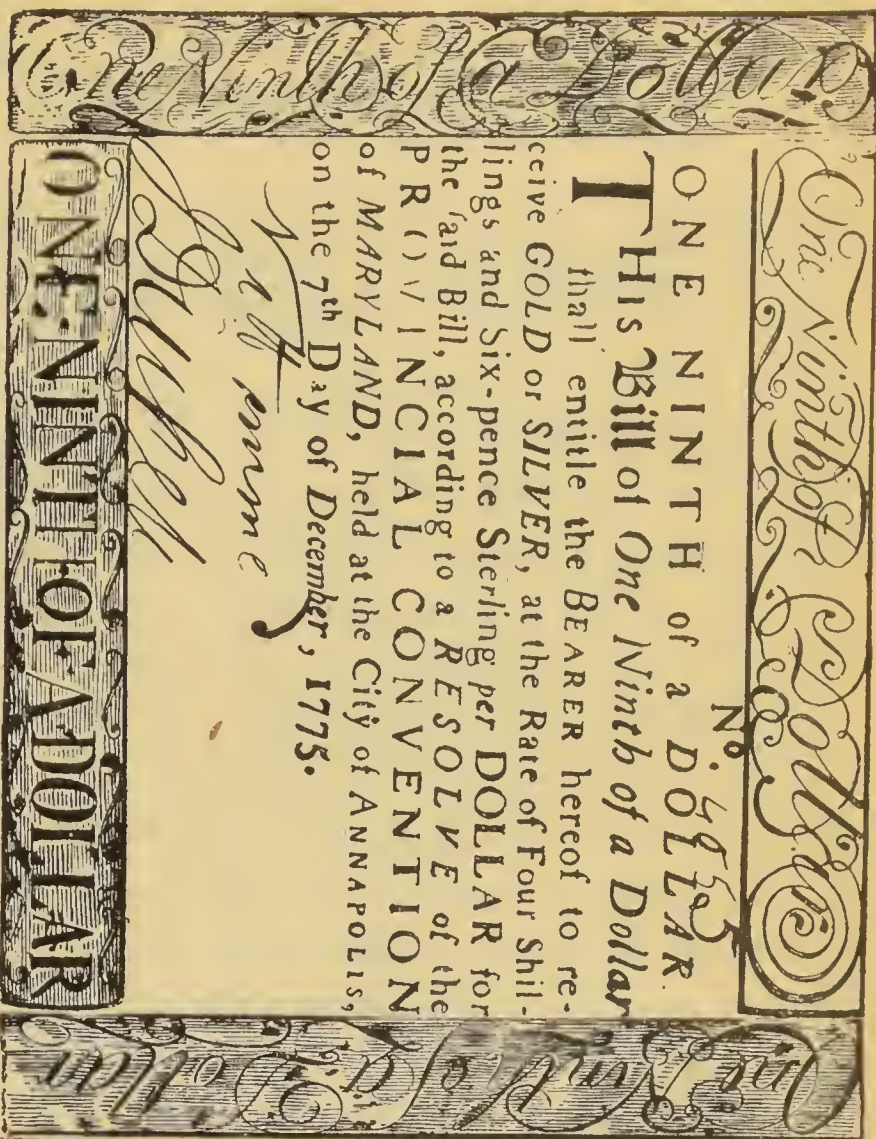 One Ninth of a Dollar
One Ninth of a Dollar
No. 4955
ONE NINTH of a DOLLAR.
THIS Bill of One Ninth of a Dollar
ſhall entitle the BEARER hereof to re-
ceive GOLD or SILVER, at the Rate of Four Shil-
lings and Six-pence Sterling per DOLLAR for
the ſaid Bill, according to a RESOLVE of the
PROVINCIAL CONVENTION
of MARYLAND, held at the City of ANNAPOLIS,
on the 7th Day of December, 1775.
ONE NINT OF A DOLLAR
One Ninth of a Dollar